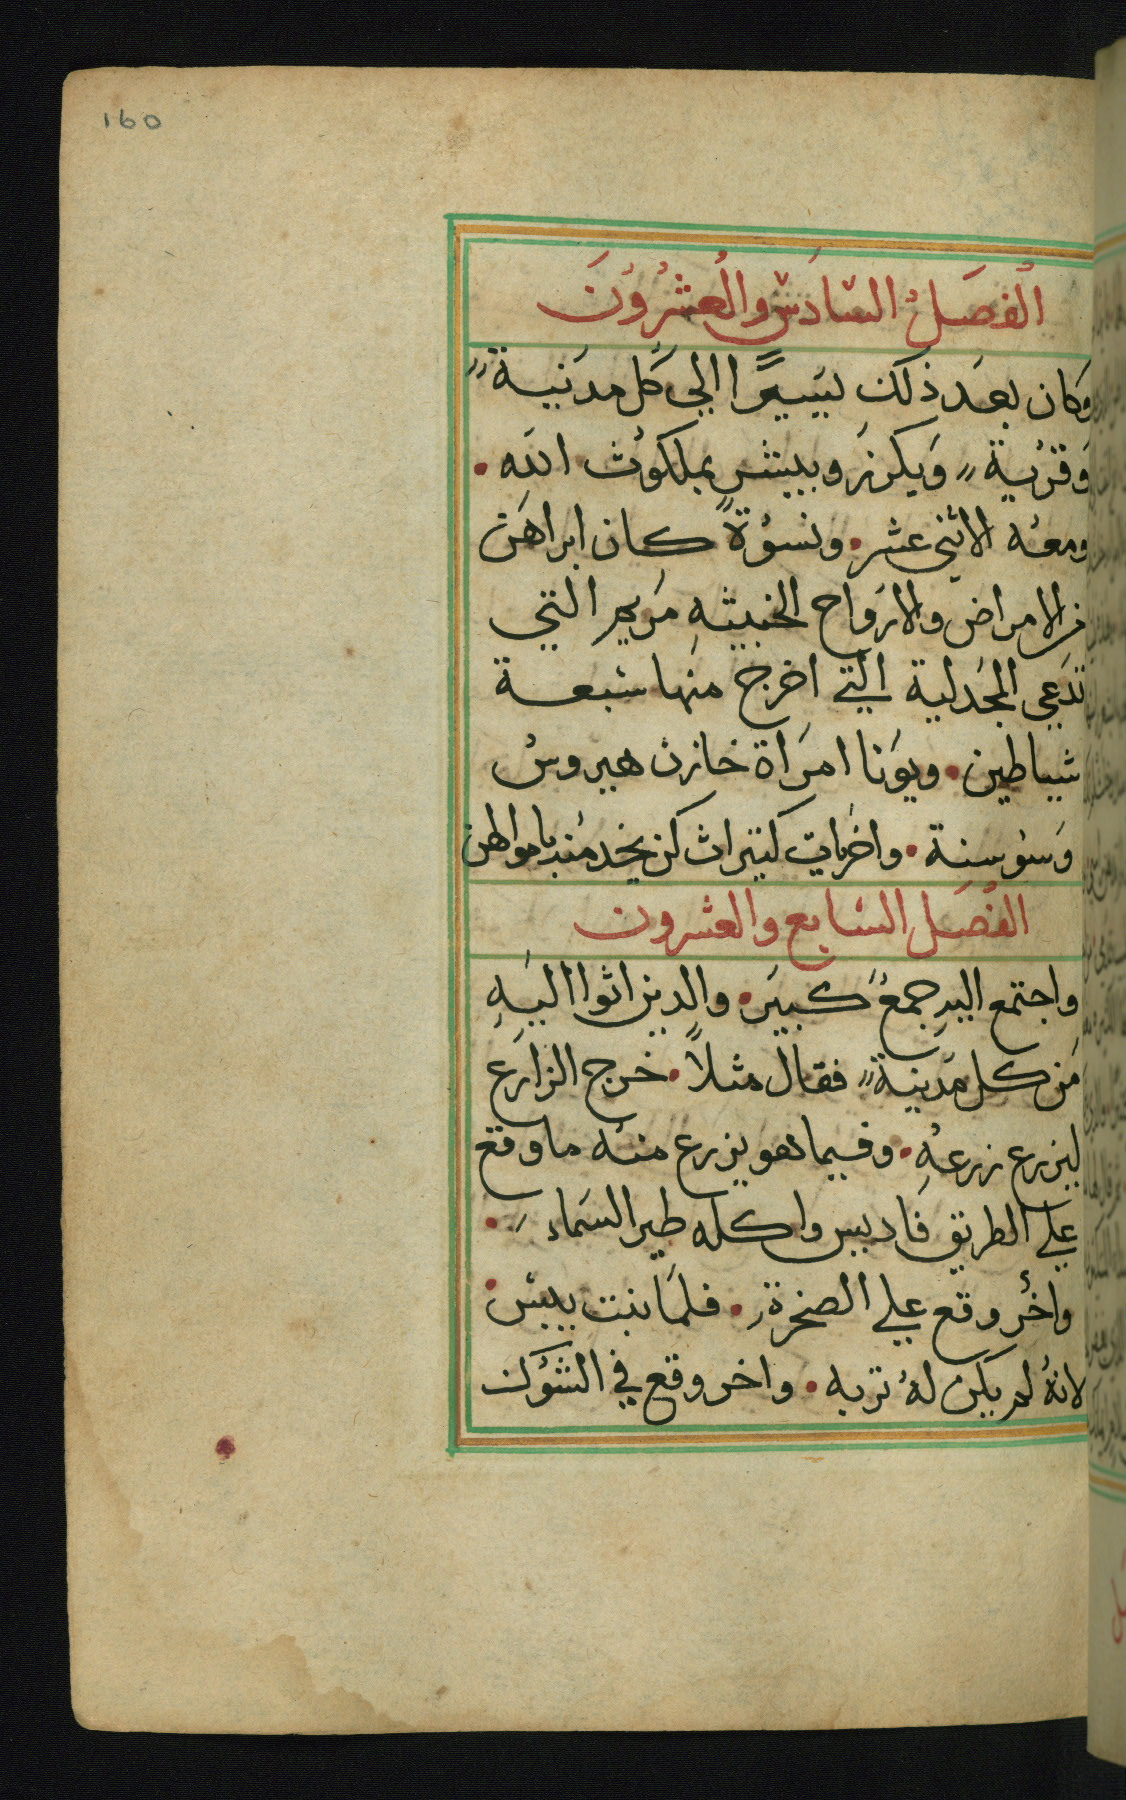 160
الفصل السادس والعشرون
وكان بعد ذلك يسير الي كل مدنية
وقرية ويكرز ويبشر بملكوت الله
ومعه الاثني عشر ونسوة كان ابراهن
من الامراض والارواح الخبيثه مريم التي
تدعي المجدلية التي اخرج منها سبعة
شياطين ويونا امراة خازن هيروس
وسوسنة واخريات كثيرات كن يخدمنه باموالهن
الفصل السابع والعشرون
واجتمع اليه جمع كبير والدين اثوا اليه
من كل مدينة فقال مثلاً خرج الزارع
ليزرع زرعه وفيما هو يزرع منه ما وقع
علي الطريق فاديس واكله طير السماء
واخر وقع علي الصخرة فلما نبت يبس
لانه لم يكن له تربه واخر وقع في الشوك